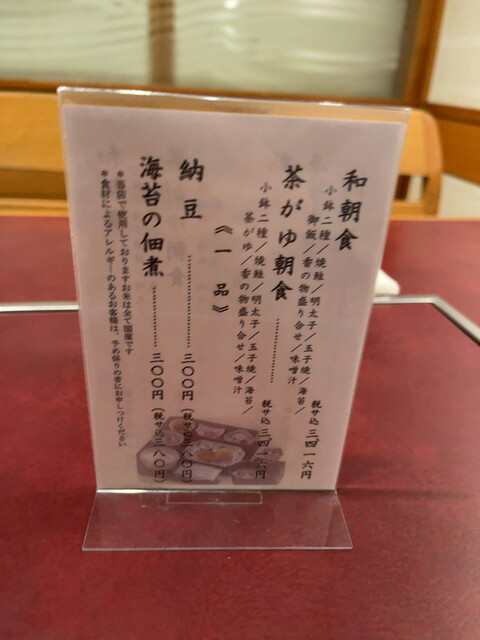 和朝食
小鉢二種／焼鮭／明太子／玉子焼／海苔／
御飯／香の物盛り合せ／味噌汁
税サ込 三、四一六円
茶がゆ朝食
小鉢二種／焼鮭／明太子／玉子焼／海苔／
茶がゆ／香の物盛り合せ／味噌汁
税サ込 三、四一六円
《一品》
納豆 三〇〇円（税サ込三八〇円）
海苔の佃煮 三〇〇円（税サ込三八〇円）
＊当店で使用しておりますお米は全て国産です
＊食材によるアレルギーのあるお客様は、予め係りの者にお申しつけください